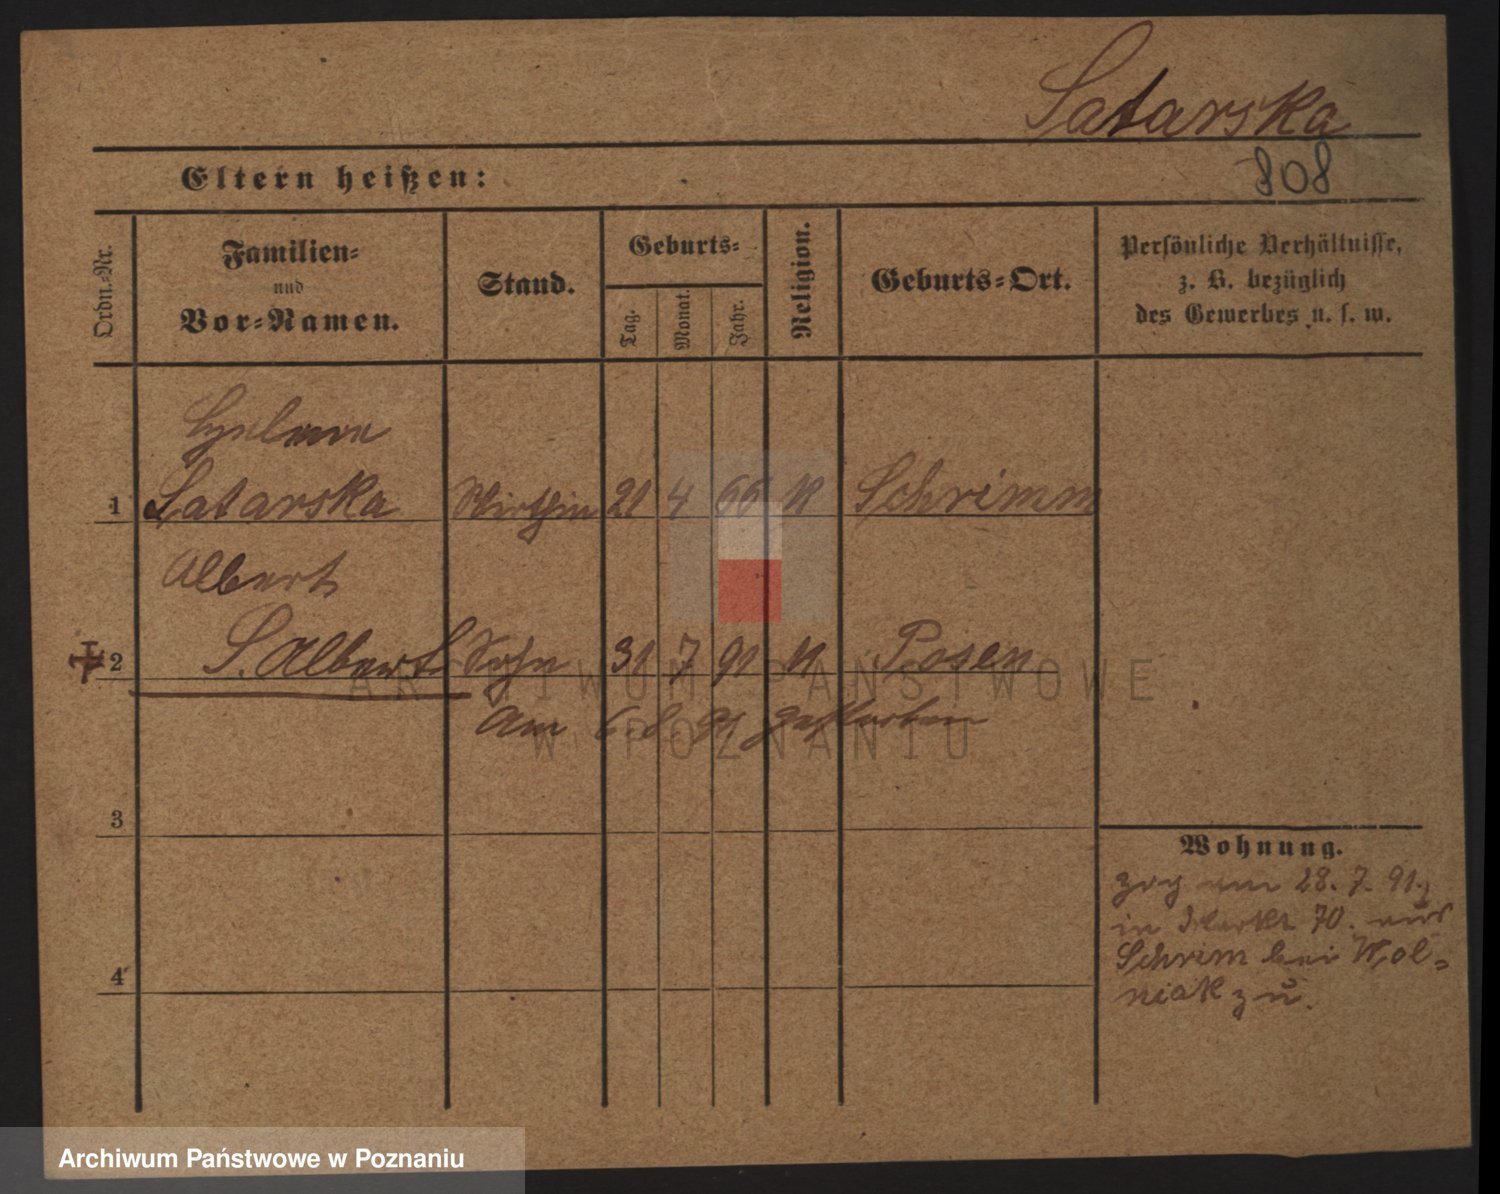 Satarska
808
Eltern heißen:
Ordn.-Nr.
Familien-
und
Vor-Namen.
Stand.
Geburts-
Tag.
Monat.
Jahr.
Religion.
Geburts-Ort.
Persönliche Verhältnisse,
z. B. bezüglich
des Gewerbes u. s. w.
Helene
1 Satarska Wirthin 21 4 66 K Schrimm
Albert
2 S. Albert Sohn 31 7 91 K Posen
Am 6. 8. 91 gestorben
3
4
Wohnung.
zog am 28. 7. 91.
in Markt 70. aus
Schrim bei Wol-
niak zu.
ARCHIWUM PAŃSTWOWE
W POZNANIU
Archiwum Państwowe w Poznaniu